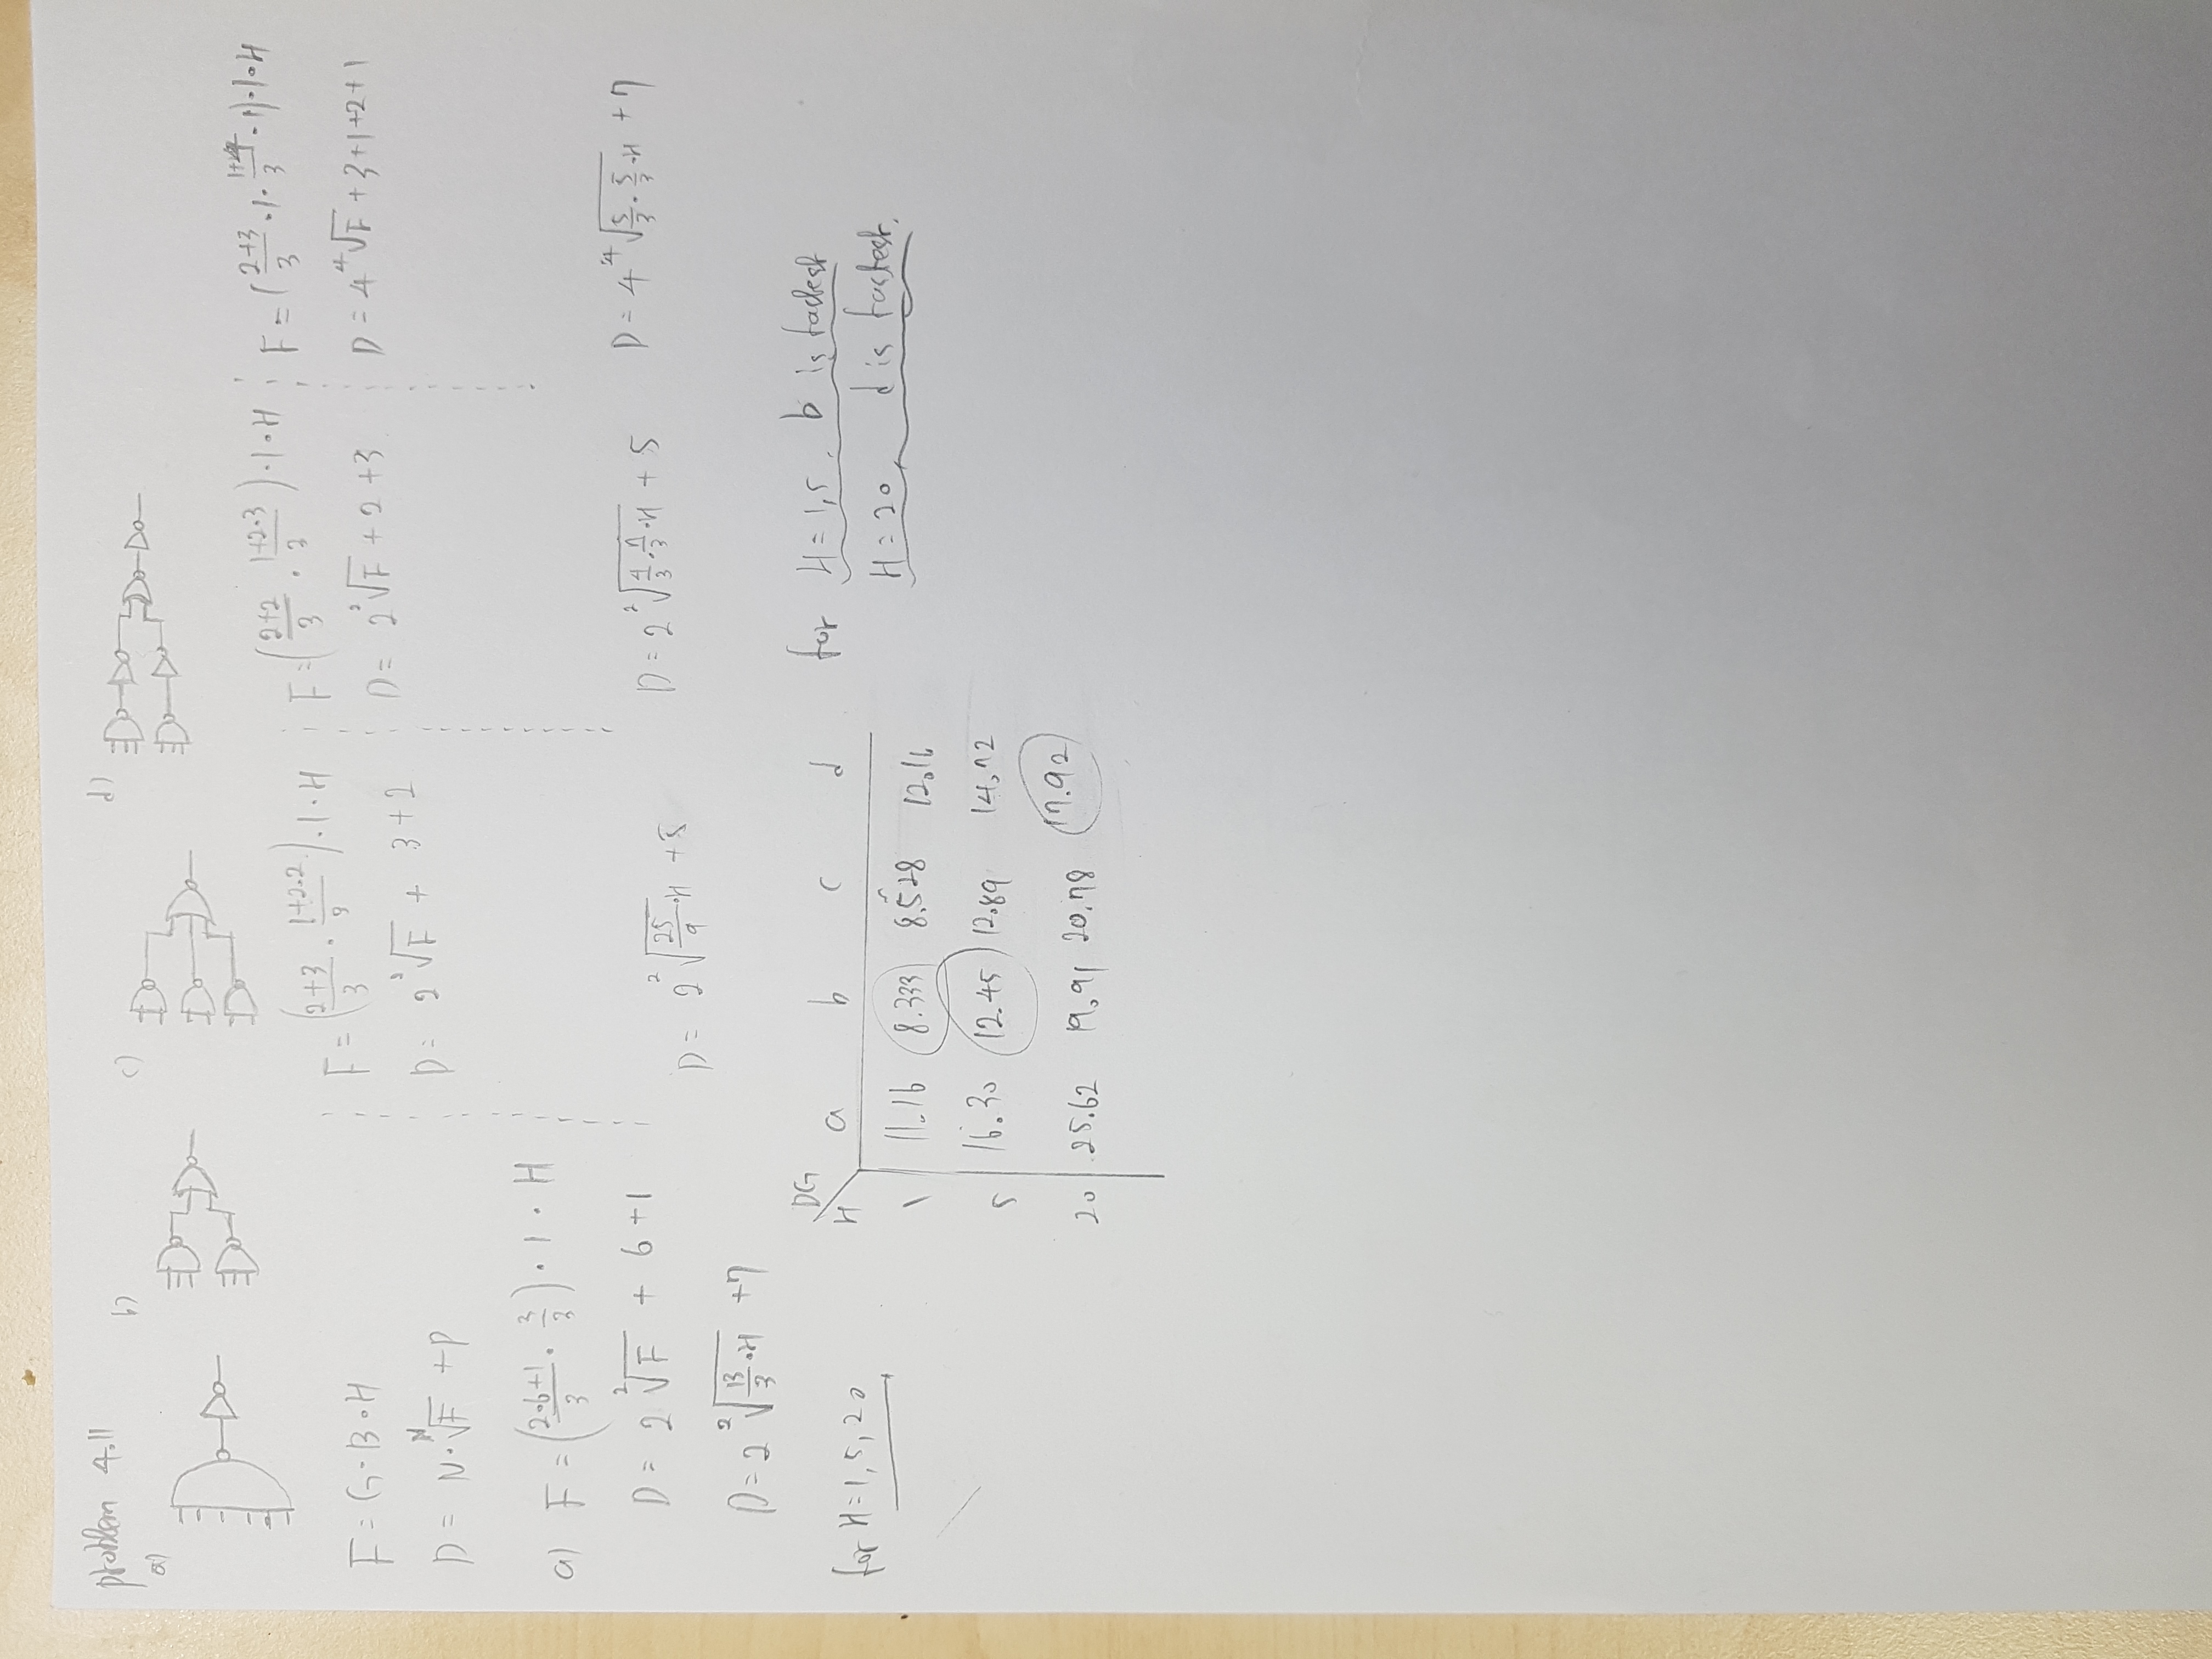 problem 4.11
a)
b)
c)
d)
F = G·B·H
D = N·ᴺ√F + P
a) F = (2·6+1/3 · 3/3) · 1 · H
D = 2 ²√F + 6+1
D = 2 ²√(13/3·H) + 7
F = (2+3/3 · 1+2·2/3) · 1 · H
D = 2 ²√F + 3+2
D = 2 ²√(25/9·H) + 5
F = (2+2/3 · 1+2·3/3) · 1 · H
D = 2 ²√F + 2+3
D = 2 ²√(4/3·7/3·H) + 5
F = (2+3/3 · 1 · 1+4/3 · 1) · 1 · H
D = 4 ⁴√F + 3+1+2+1
D = 4 ⁴√(5/3·5/3·H) + 7
for H=1, 5, 20
DG
H a b c d
1 11.16 8.333 8.528 12.16
5 16.30 12.45 12.89 14.72
20 25.62 19.91 20.78 17.92
for H=1,5, b is fastest
H=20, d is fastest.